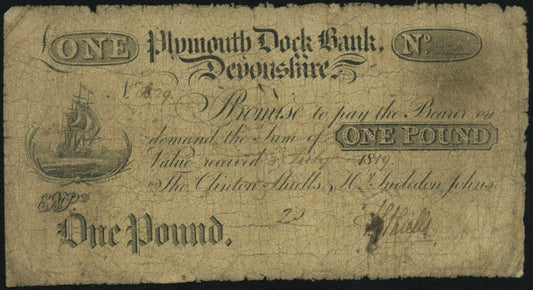 ONE Plymouth Dock Bank, Nº
Devonshire.
Nº
Promise to pay the Bearer on
demand, the Sum of ONE POUND
Value received 3 July 1819.
Tho. Clinton Shiells, Hy. Incledon Johns.
23
One Pound. Shiells